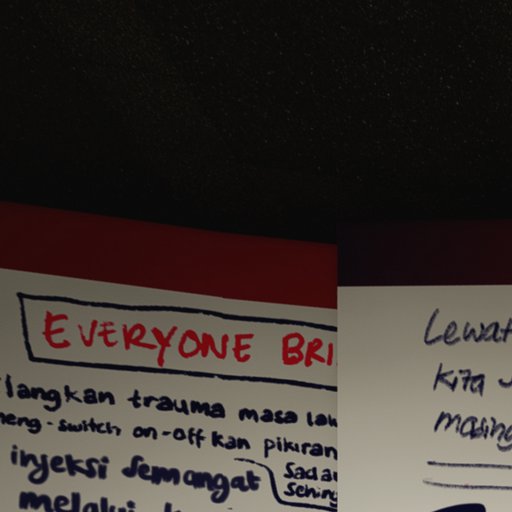 EVERYONE BRI
langkan trauma masa lal
meng-switch on-off kan pikiran
injeksi semangat
Sadar
sehing
melalui
Lewat
kita
masing